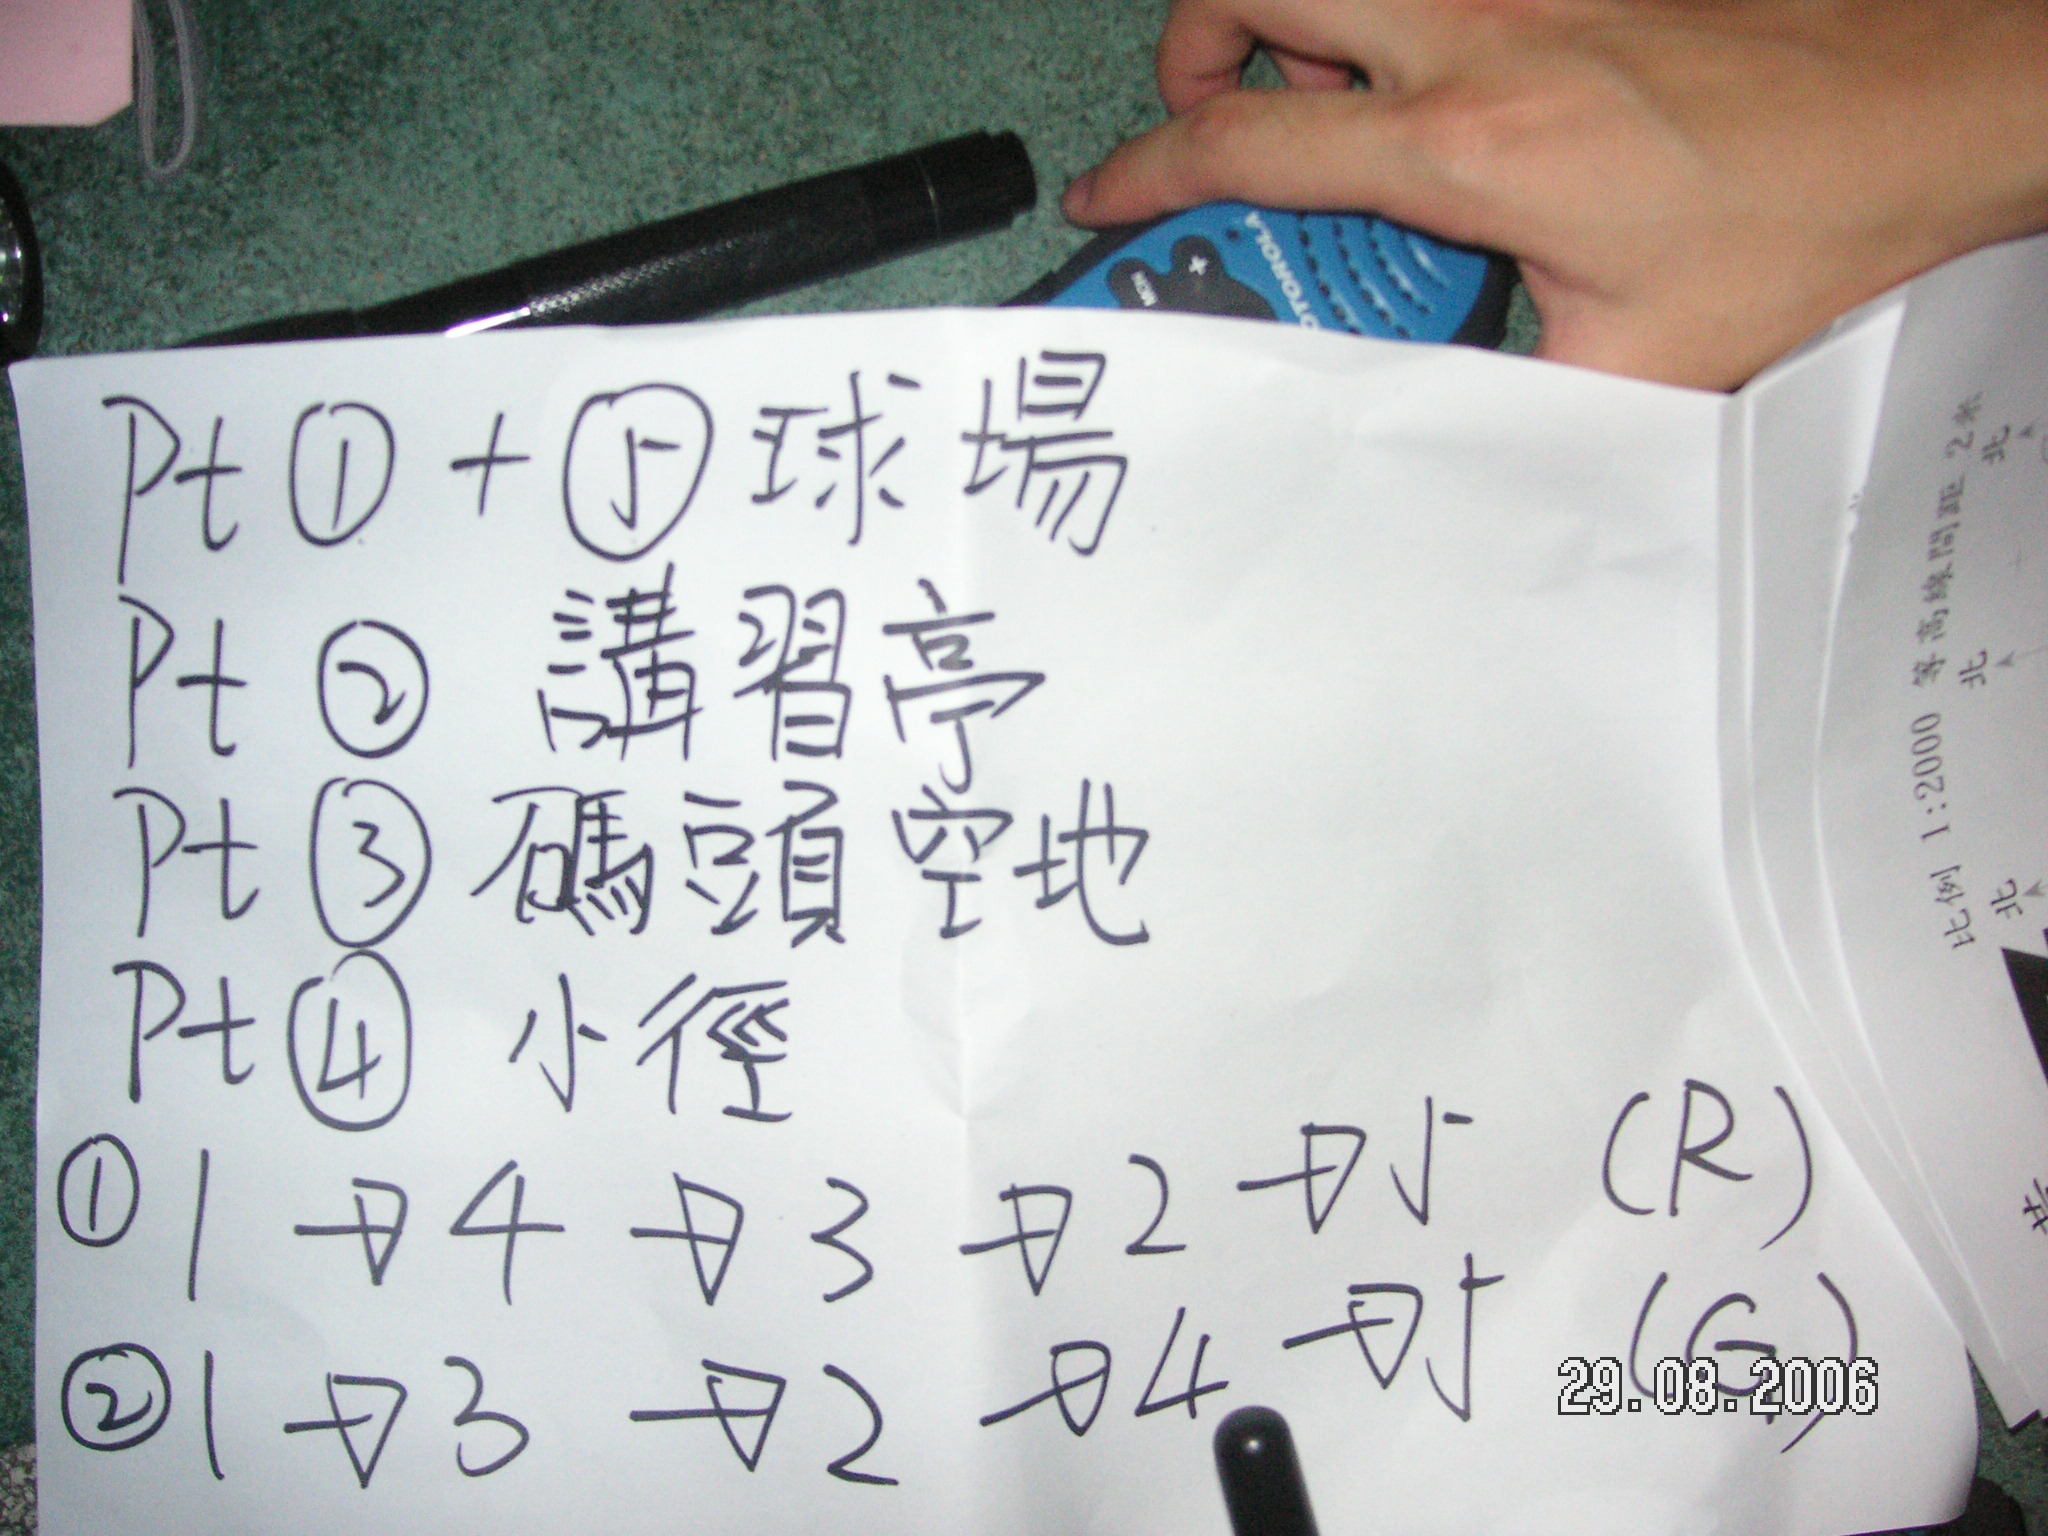 Pt ① + ⑤ 球場
Pt ② 講習亭
Pt ③ 碼頭空地
Pt ④ 小徑
① 1 → 4 → 3 → 2 → 5 (R)
② 1 → 3 → 2 → 4 → 5 (G)
29.08.2006
MOTOROLA
MON
比例 1:2000 等高線間距 2米
北
北
北